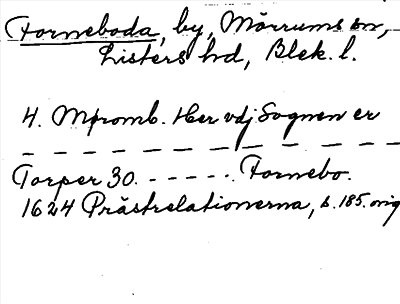 Forneboda, by, Mörrums sn,
Listers hd, Blek. l.
4. Mpromb. Her vdj Sognen er
– – – – – – – – – – – – –
Torper 30. - - - - - . Fornebo.
1624 Prästrelationerna, s. 185. orig